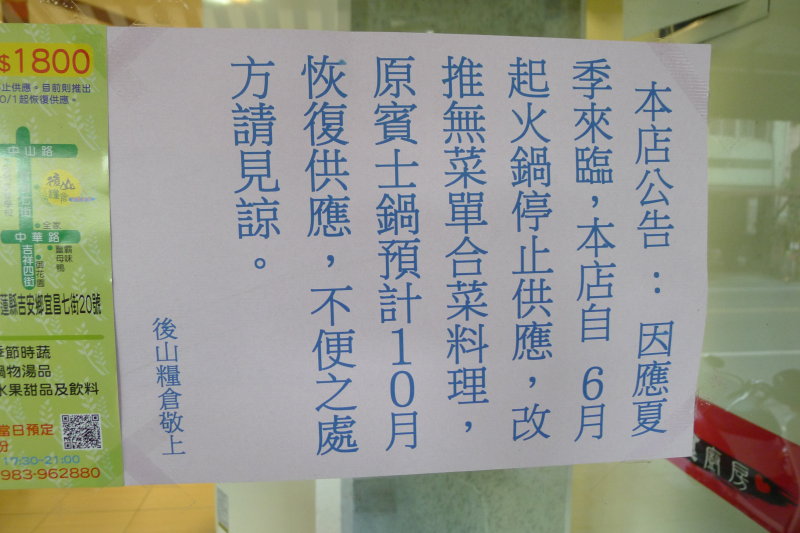 本店公告：因應夏
季來臨，本店自 6月
起火鍋停止供應，改
推無菜單合菜料理，
原賓士鍋預計10月
恢復供應，不便之處
方請見諒。
後山糧倉敬上
$1800
止供應。目前則推出
0/1起恢復供應。
中山路
後山
糧倉
全家
中華路
吉祥四街
蓮縣吉安鄉宜昌七街20號
季節時蔬
鍋物湯品
水果甜品及飲料
當日預定
份
17:30-21:00
983-962880
廚房